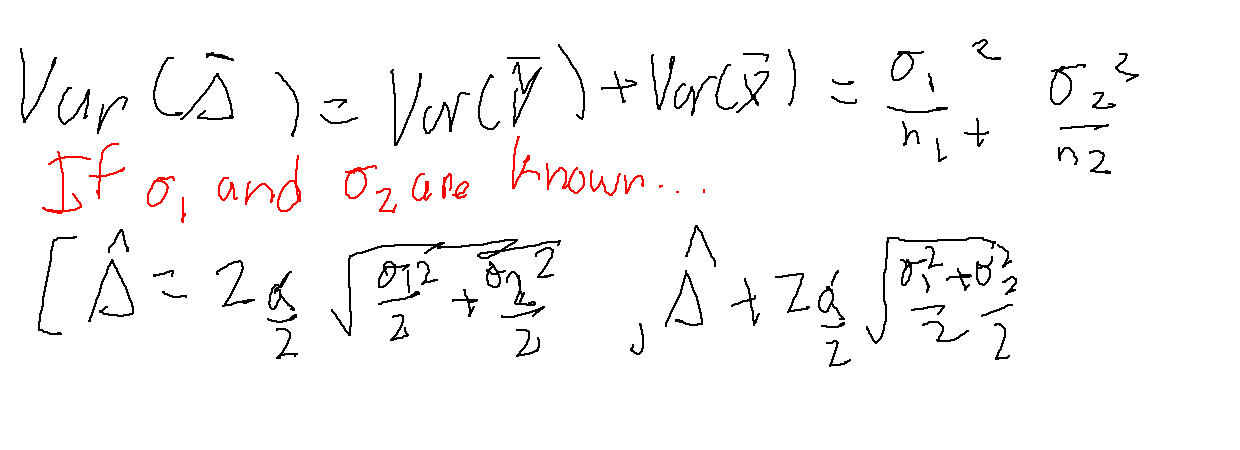 Var(Δ̄) = Var(Ȳ) + Var(X̄) = σ₁²/n₁ + σ₂³/n₂
If σ₁ and σ₂ are known...
[Δ̂ = Z α/2 √(σ₁²/2 + σ₂²/2) , Δ̂ + Z α/2 √(σ₁²/2 + σ₂²/2)